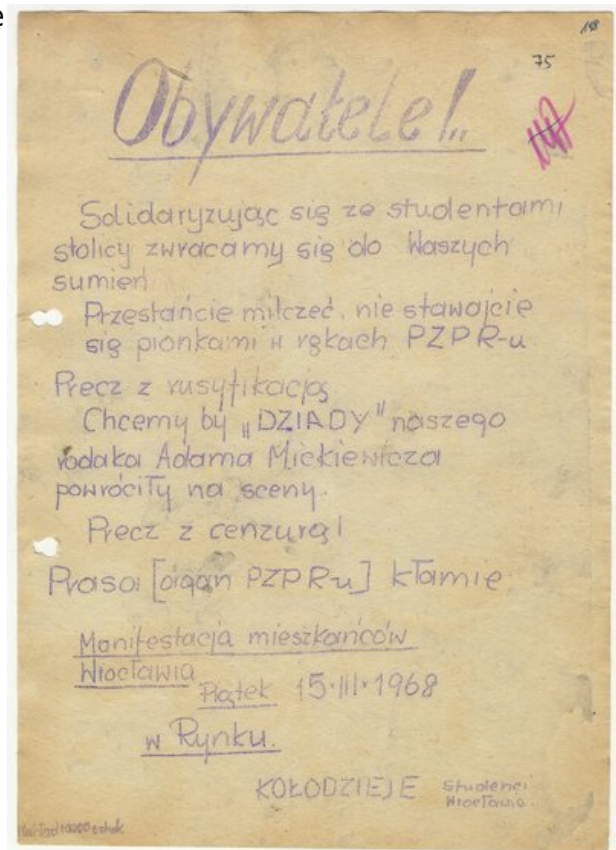 e
148
75
Obywatele!..
Solidaryzując się ze studentami
stolicy zwracamy się do Waszych
sumień
Przestańcie milczeć, nie stawajcie
się pionkami w rękach PZPR-u
Precz z rusyfikacją
Chcemy by „DZIADY" naszego
rodaka Adama Mickiewicza
powróciły na sceny.
Precz z cenzurą!
Prasa [organ PZPR-u] kłamie
Manifestacja mieszkańców
Wrocławia
Piątek 15·III·1968
w Rynku.
KOŁODZIEJE Studenci
Wrocławia